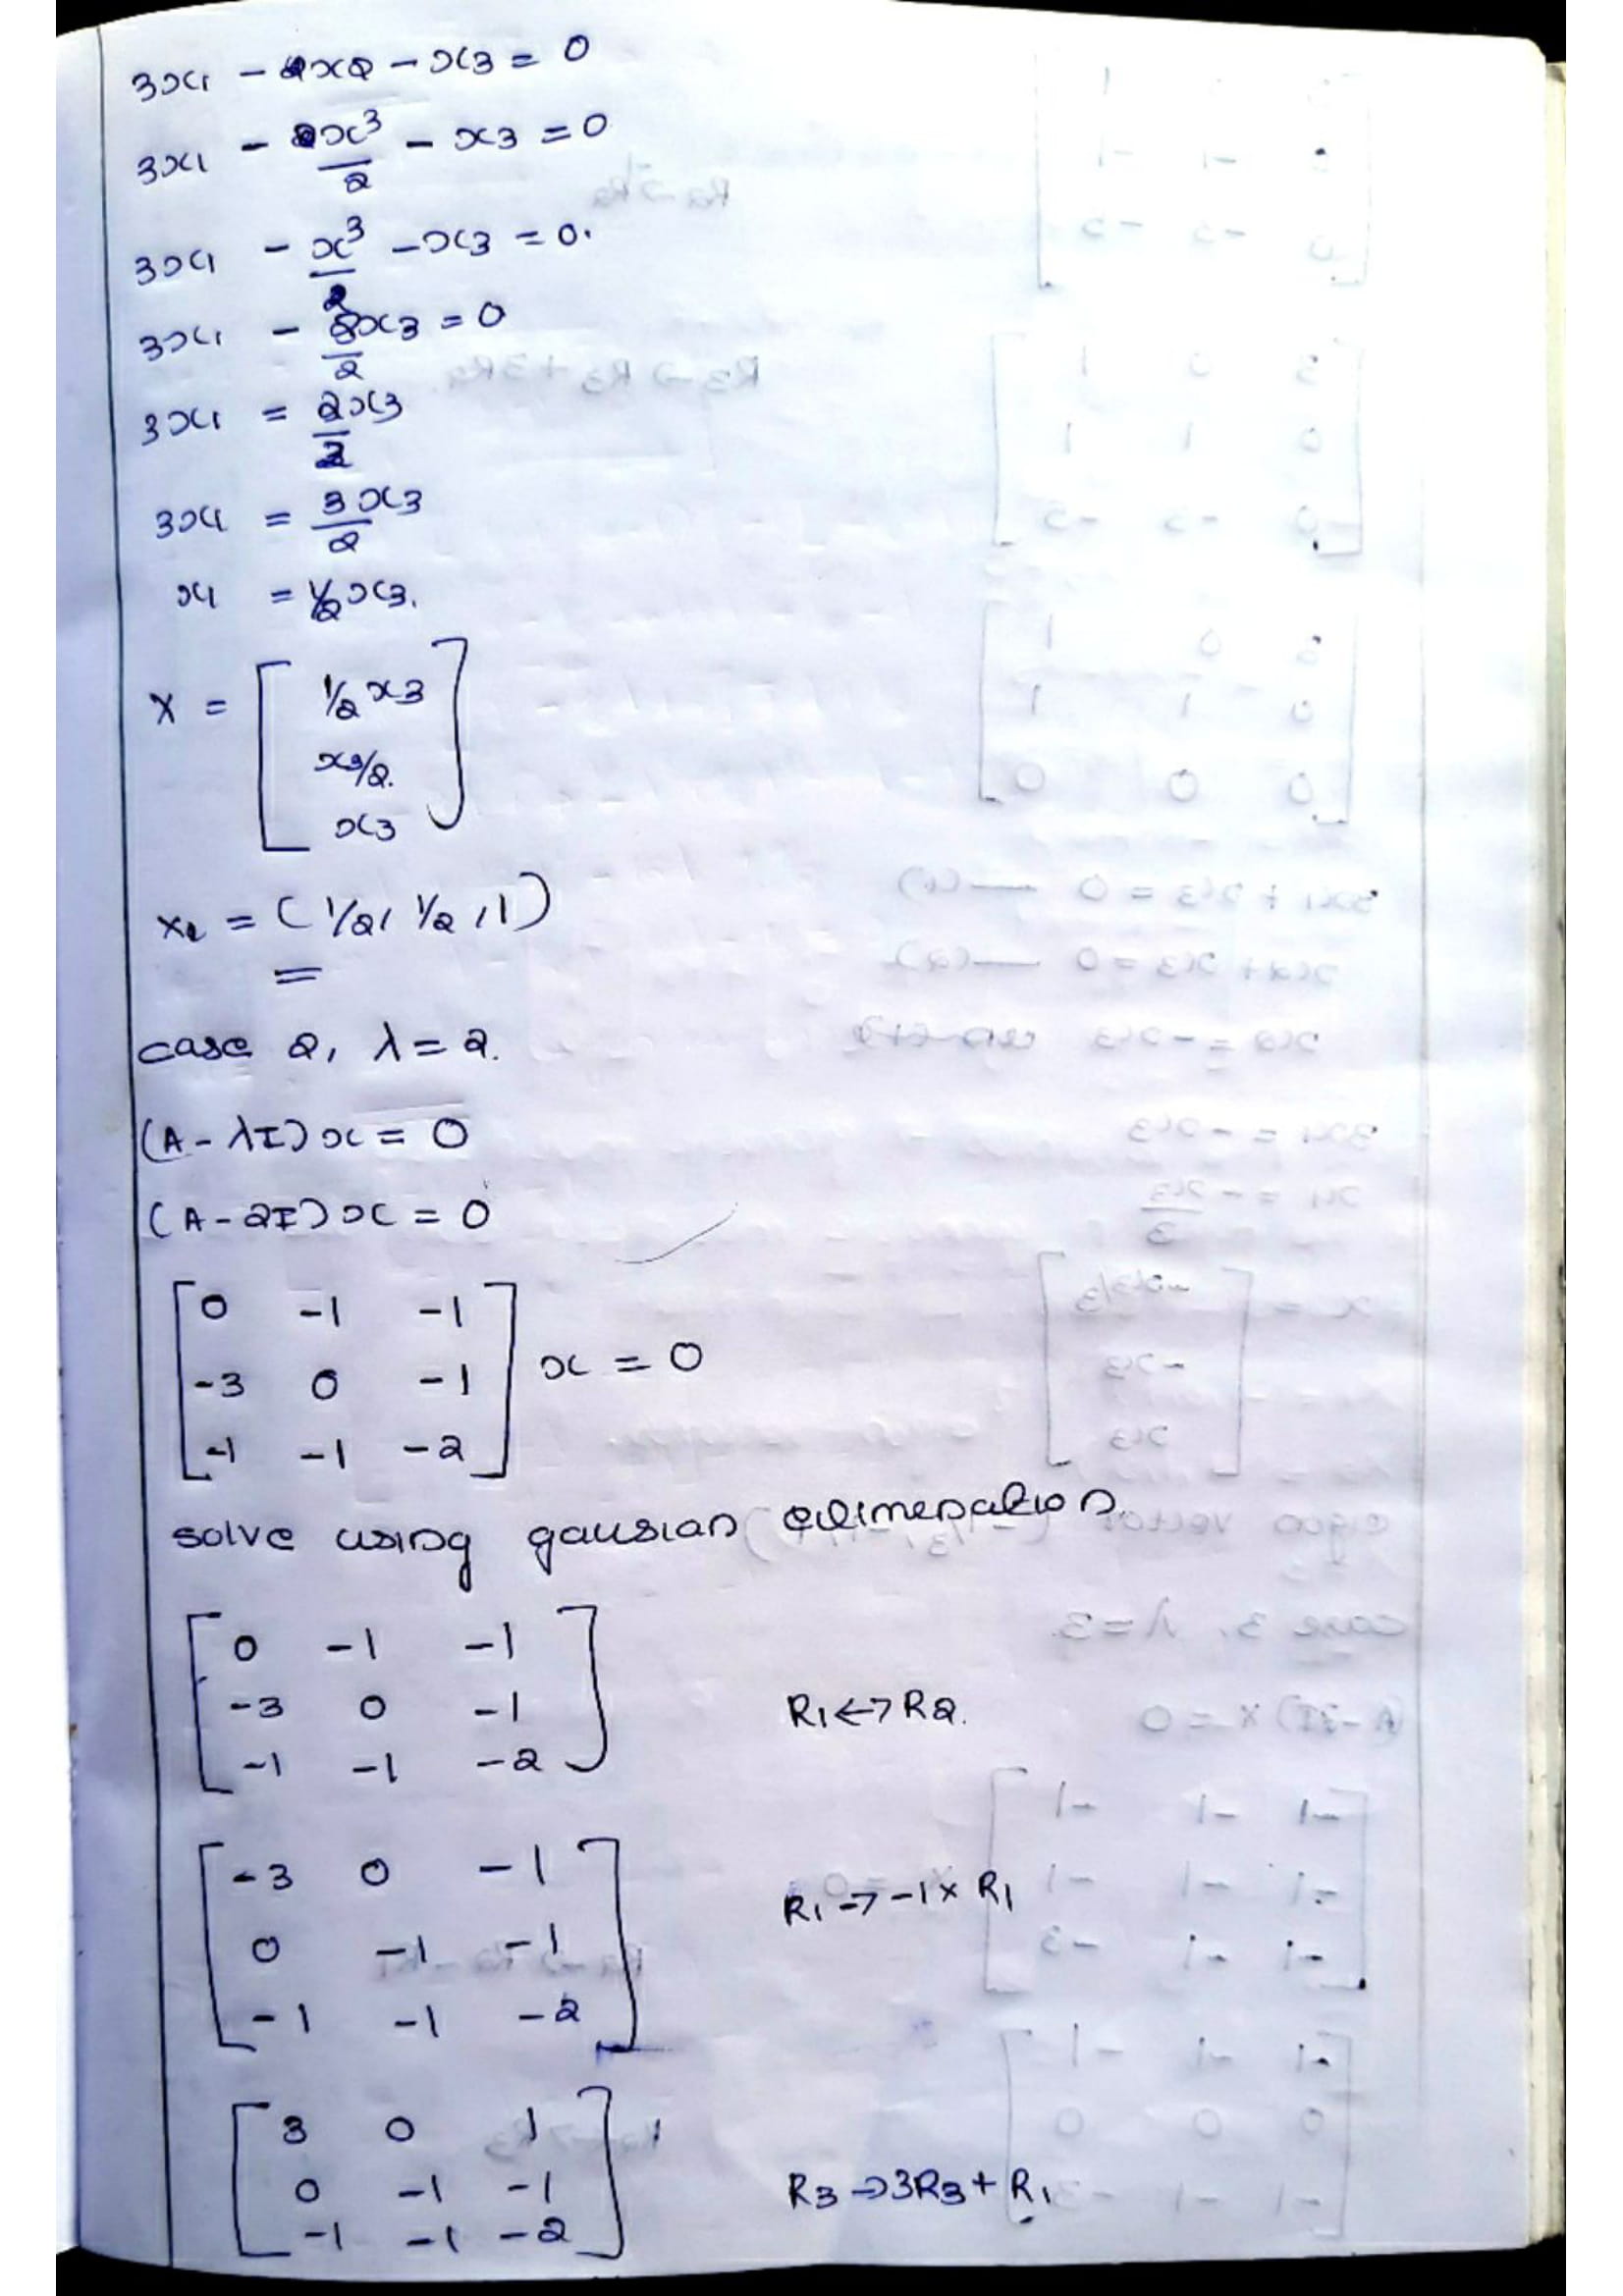 3x1 - x2 - x3 = 0
3x1 - x3/2 - x3 = 0
3x1 - x3/2 - x3 = 0.
3x1 - 3/2x3 = 0
3x1 = 2x3/2
3x1 = 3x3/2
x1 = 1/2x3.
X = [ 1/2 x3
x3/2.
x3 ]
x2 = (1/2, 1/2, 1)
=
case 2, λ = 2.
(A - λI)x = 0
(A - 2I)x = 0
[ 0 -1 -1
-3 0 -1
-1 -1 -2 ] x = 0
solve using gausian elimenation.
[ 0 -1 -1
-3 0 -1 R1 ↔ R2.
-1 -1 -2 ]
[ -3 0 -1
0 -1 -1 R1 → -1 x R1
-1 -1 -2 ]
[ 3 0 1
0 -1 -1 R3 → 3R3 + R1
-1 -1 -2 ]